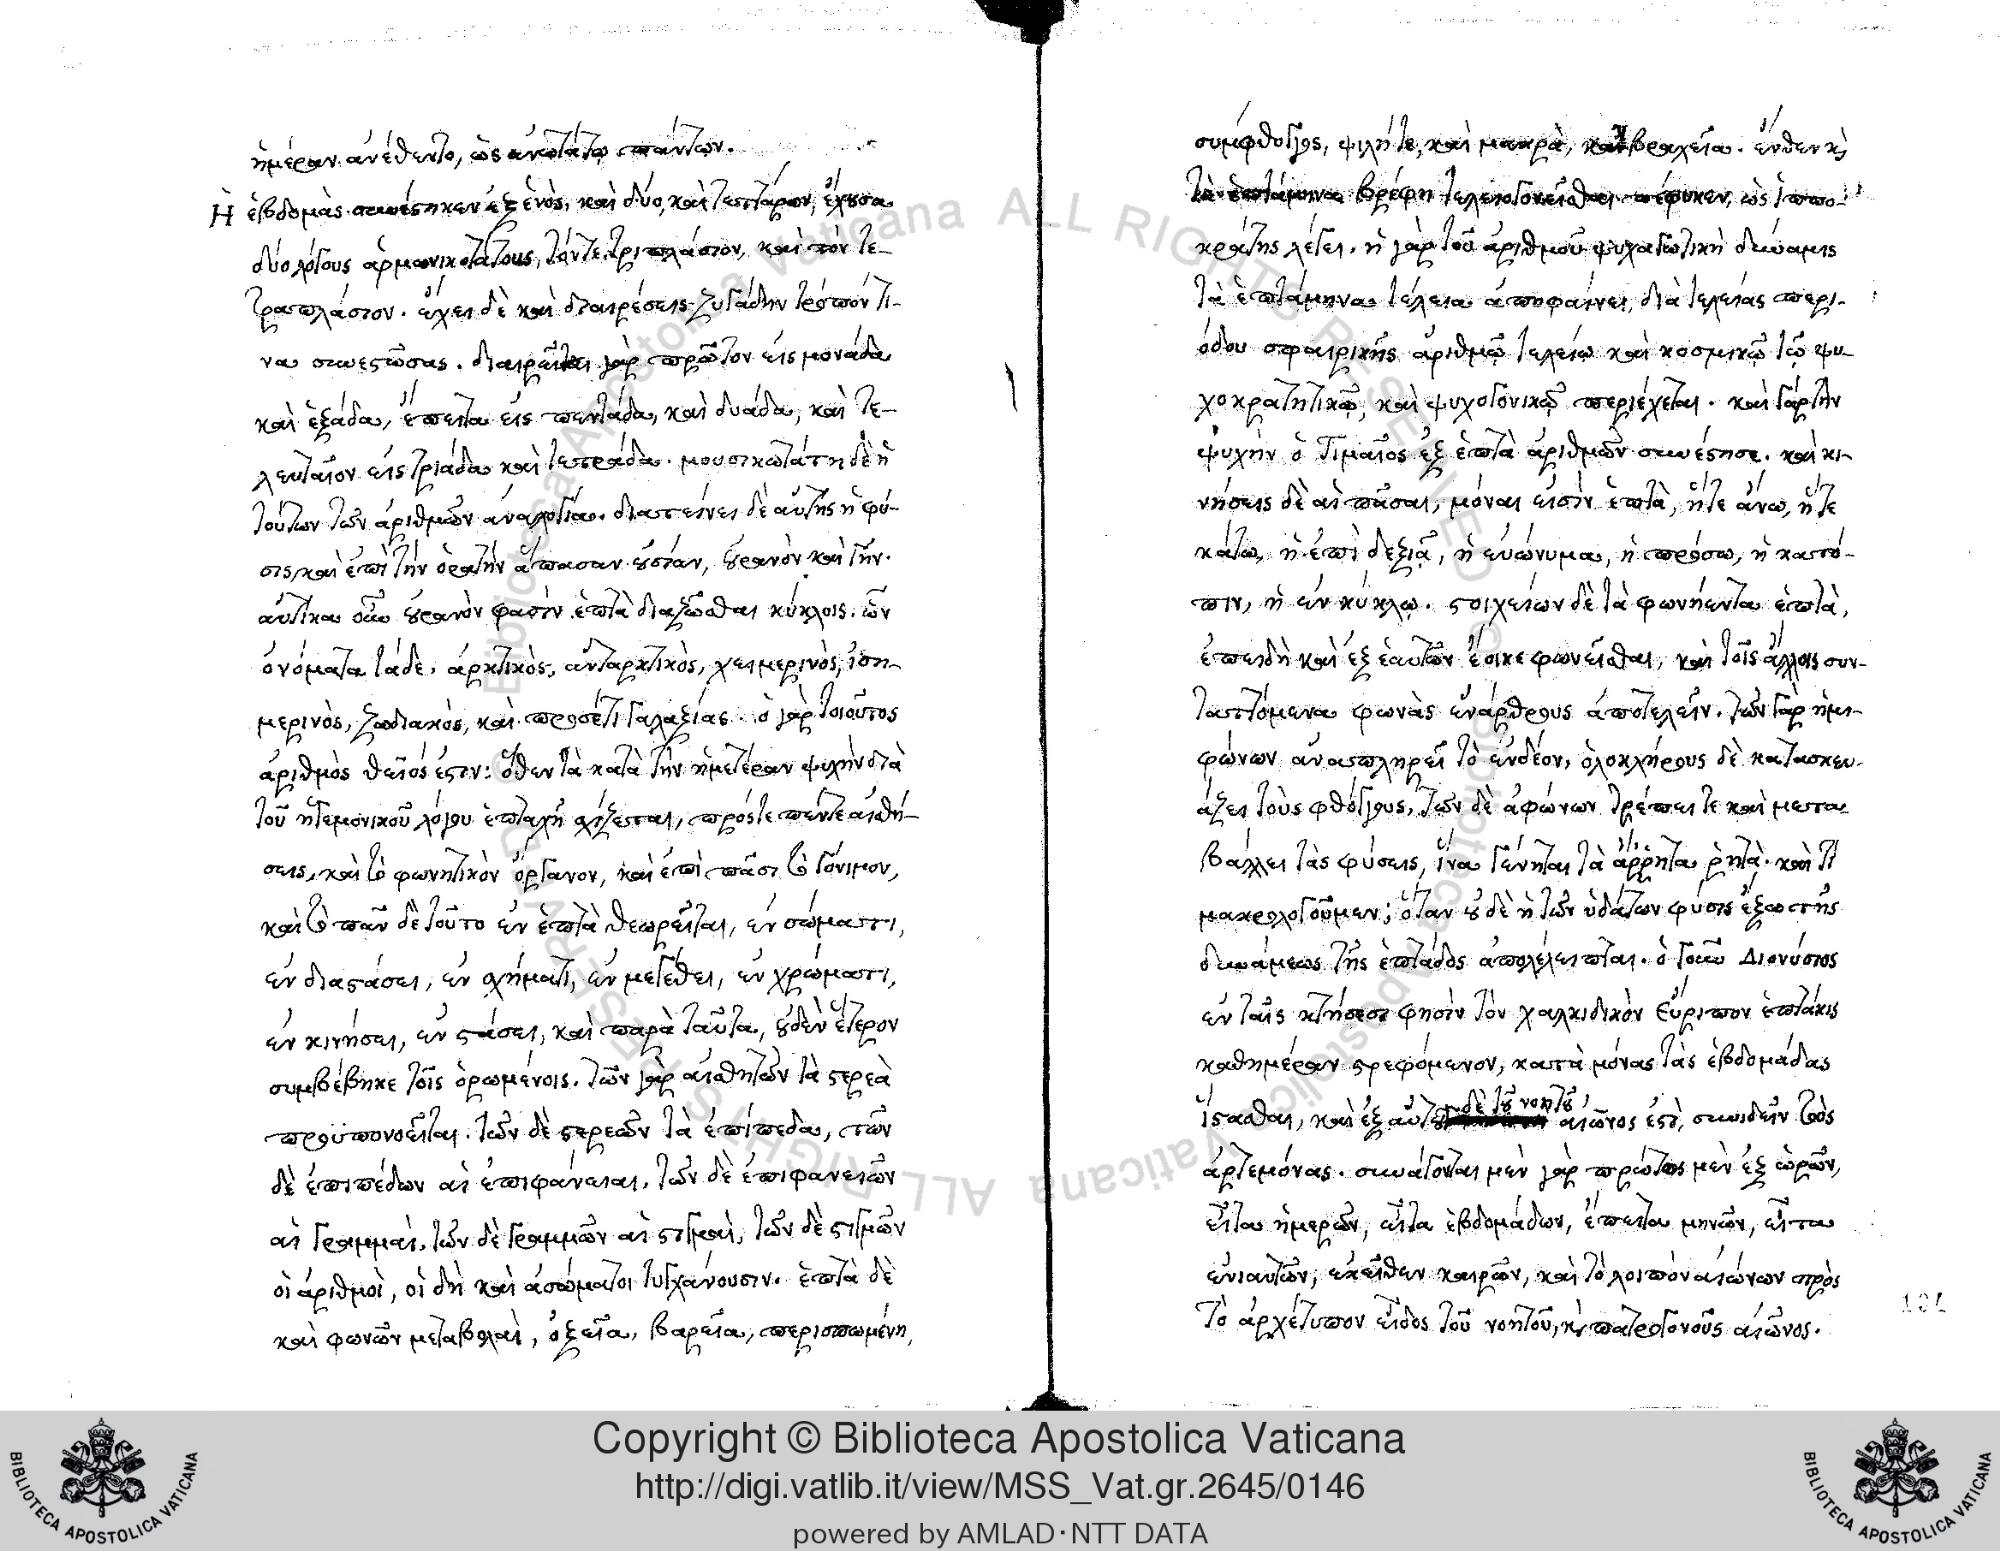 ἡμέραν ἀνέθεντο, ὡς ἀνωτάτω πάντων.
Ἡ ἑβδομὰς συνέστηκεν ἐξ ἑνὸς, καὶ δύο, καὶ τεσσάρων, ἔχουσα
δύο λόγους ἁρμονικωτάτους, τόν τε τριπλάσιον, καὶ τὸν τε-
τραπλάσιον. ἔχει δὲ καὶ διαιρέσεις ζυγάδην τρόπόν τι-
να συνεστώσας. διαιρεῖται γὰρ πρῶτον εἰς μονάδα
καὶ ἑξάδα, ἔπειτα εἰς πεντάδα, καὶ δυάδα, καὶ τε-
λευταῖον εἰς τριάδα καὶ τετράδα. μουσικωτάτη δὲ ἡ
τούτων τῶν ἀριθμῶν ἀναλογία. διατείνει δὲ αὐτῆς ἡ φύ-
σις καὶ ἐπὶ τὴν ὁρατὴν ἅπασαν οὐσίαν, οὐρανὸν καὶ γῆν.
αὐτίκα οὖν οὐρανὸν φασὶν ἑπτὰ διαζῶσθαι κύκλοις. ὧν
ὀνόματα τάδε. ἀρκτικὸς, ἀνταρκτικὸς, χειμερινὸς, ἰση-
μερινὸς, ζωδιακὸς, καὶ προσέτι γαλαξίας. ὁ γὰρ τοιοῦτος
ἀριθμὸς θεῖός ἐστιν: ὅθεν τὰ κατὰ τὴν ἡμετέραν ψυχὴν διὰ
τοῦ ἡγεμονικοῦ λόγου ἑπταχῆ σχίζεται, πρός τε πέντε αἰσθή-
σεις, καὶ τὸ φωνητικὸν ὄργανον, καὶ ἐπὶ πᾶσι τὸ γόνιμον,
καὶ τὸ πᾶν δὲ τοῦτο ἐν ἑπτὰ θεωρεῖται, ἐν σώματι,
ἐν διαστάσει, ἐν σχήματι, ἐν μεγέθει, ἐν χρώματι,
ἐν κινήσει, ἐν στάσει, καὶ παρὰ ταῦτα, οὐδὲν ἕτερον
συμβέβηκε τοῖς ὁρωμένοις. τῶν γὰρ αἰσθητῶν τὰ στερεὰ
προϋπονοεῖται. τῶν δὲ στερεῶν τὰ ἐπίπεδα, τῶν
δὲ ἐπιπέδων αἱ ἐπιφάνειαι. τῶν δὲ ἐπιφανειῶν
αἱ γραμμαὶ, τῶν δὲ γραμμῶν αἱ στιγμαὶ, τῶν δὲ στιγμῶν
οἱ ἀριθμοὶ, οἱ δὴ καὶ ἀσώματοι τυγχάνουσιν. ἑπτὰ δὲ
καὶ φωνῶν μεταβολαὶ, ὀξεῖα, βαρεῖα, περισπωμένη,
συμφθογγος, ψιλή τε, καὶ μακρὰ, καὶ βραχεῖα. ἔνθεν κ̀
τὰ ἑπτάμηνα βρέφη τελειογονεῖσθαι πέφυκεν, ὡς ἱππο-
κράτης λέγει. ἡ γὰρ τοῦ ἀριθμοῦ ψυχαγωτικὴ δύναμις
τὰ ἑπτάμηνα τέλεια ἀποφαίνει, διὰ τελείας περι-
όδου σφαιρικῆς ἀριθμῷ τελείῳ καὶ κοσμικῷ τῷ ψυ-
χοκρατητικῷ, καὶ ψυχογονικῷ περιέχεται. καὶ γάρ τὴν
ψυχὴν ὁ Τιμαῖος ἐξ ἑπτὰ ἀριθμῶν συνέστησε. καὶ κι-
νήσεις δὲ αἱ πᾶσαι, μόναι εἰσὶν ἑπτὰ, ἥ τε ἄνω, ἥ τε
κάτω, ἡ ἐπὶ δεξιᾷ, ἡ εὐώνυμα, ἡ πρόσω, ἡ κατό-
πιν, ἡ ἐν κύκλῳ. στοιχείων δὲ τὰ φωνήεντα ἑπτὰ,
ἐπειδὴ καὶ ἐξ ἑαυτῶν ἔοικε φωνεῖσθαι, καὶ τοῖς ἄλλοις συν-
ταττόμενα φωνὰς ἐνάρθρους ἀποτελεῖν. τῶν γὰρ ἡμι-
φώνων ἀναπληρεῖ τὸ ἐνδέον, ὁλοκλήρους δὲ κατασκευ-
άζει τοὺς φθόγγους, τῶν δὲ ἀφώνων τρέπει τε καὶ μετα
βάλλει τὰς φύσεις, ἵνα γένηται τὰ ἄρρητα ῥητὰ. καὶ τί
μακρολογοῦμεν; ὅταν οὐδὲ ἡ τῶν ὑδάτων φύσις ἔξω τῆς
δυνάμεως τῆς ἑπτάδος ἀπολέλειπται. ὁ γοῦν Διονύσιος
ἐν ταῖς κτήσεσι φησὶν τὸν χαλκιδικὸν Εὔριπον ἑπτάκις
καθημέραν στρεφόμενον, κατὰ μόνας τὰς ἑβδομάδας
ἵστασθαι, καὶ ἐξ αὐτοῦ δὲ τοῦ νοητοῦ αἰῶνος ἐστὶ, συνιδεῖν τοὺς
ἀρτεμόνας. συνάγονται μὲν γὰρ πρῶτος μὲν ἐξ ὡρῶν,
εἶτα ἡμερῶν, εἶτα ἑβδομάδων, ἔπειτα μηνῶν, εἶτα
ἐνιαυτῶν, ἐκεῖθεν καιρῶν, καὶ τὸ λοιπὸν αἰώνων πρὸς
τὸ ἀρχέτυπον εἶδος τοῦ νοητοῦ, κ̀ πατρογονοῦς αἰῶνος.
Copyright © Biblioteca Apostolica Vaticana
http://digi.vatlib.it/view/MSS_Vat.gr.2645/0146
powered by AMLAD·NTT DATA
BIBLIOTECA APOSTOLICA VATICANA
BIBLIOTECA APOSTOLICA VATICANA